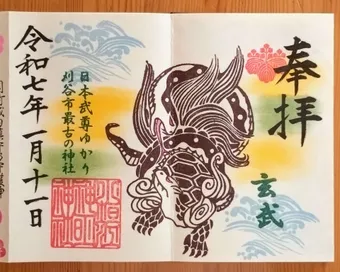 奉拝
玄武
日本武尊ゆかり
刈谷市最古の神社
令和七年一月十一日